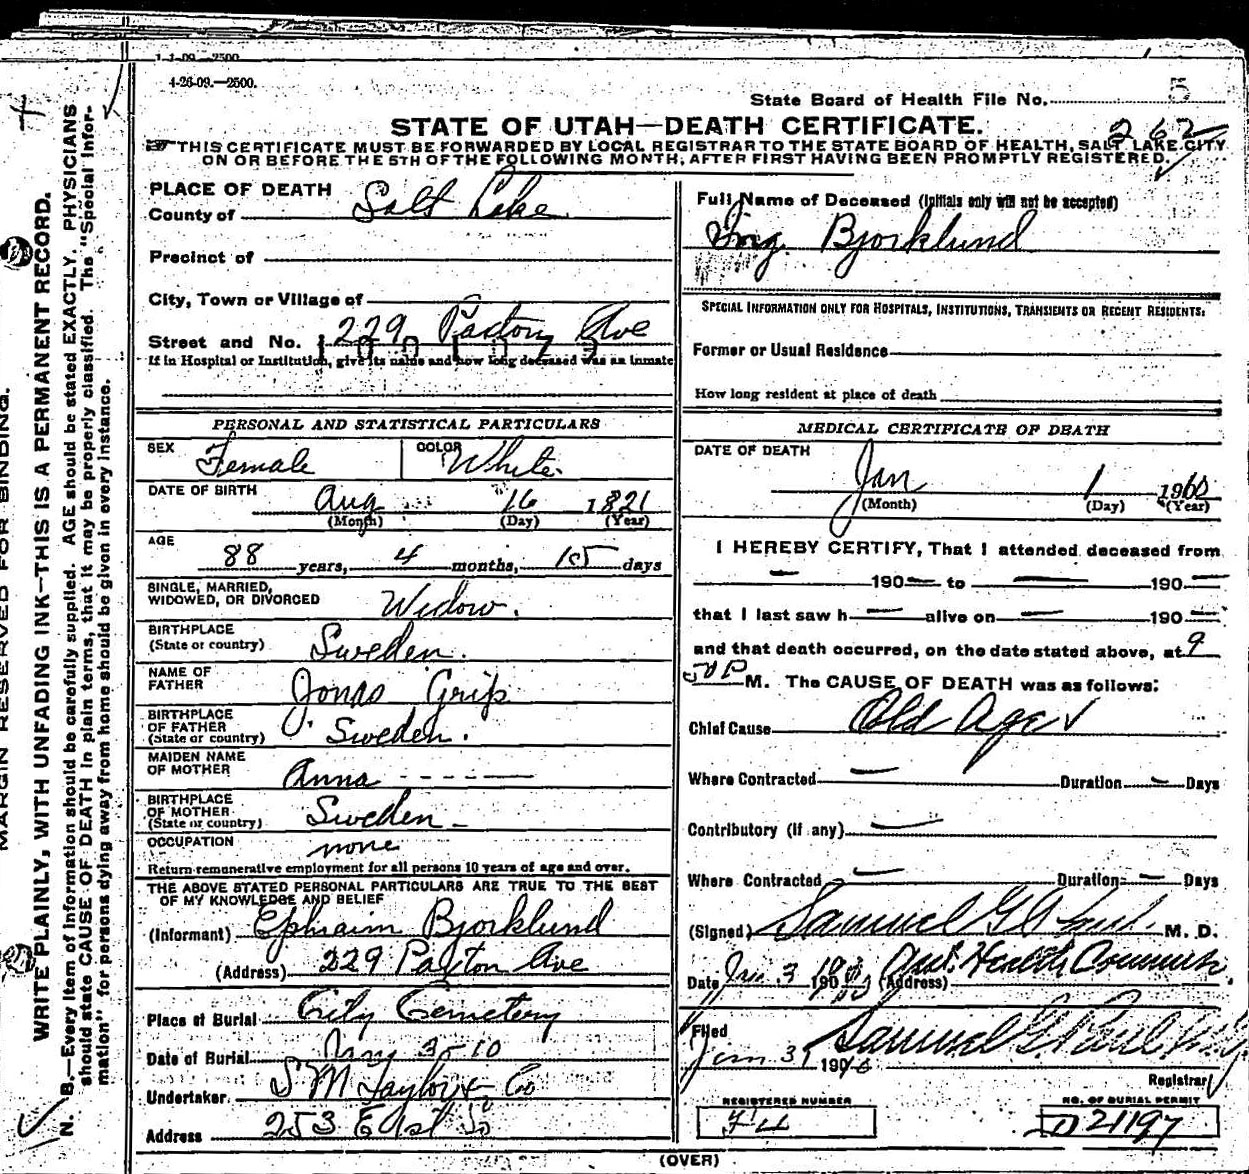 1-1-09.—2500.
4-26-09.—2500.
State Board of Health File No. 5
STATE OF UTAH—DEATH CERTIFICATE.
262
THIS CERTIFICATE MUST BE FORWARDED BY LOCAL REGISTRAR TO THE STATE BOARD OF HEALTH, SALT LAKE CITY
ON OR BEFORE THE 5TH OF THE FOLLOWING MONTH, AFTER FIRST HAVING BEEN PROMPTLY REGISTERED.
MARGIN RESERVED FOR BINDING.
WRITE PLAINLY, WITH UNFADING INK—THIS IS A PERMANENT RECORD.
N. B.—Every item of information should be carefully supplied. AGE should be stated EXACTLY. PHYSICIANS
should state CAUSE OF DEATH in plain terms, that it may be properly classified. The "Special Infor-
mation" for persons dying away from home should be given in every instance.
PLACE OF DEATH
County of Salt Lake
Precinct of
City, Town or Village of
Street and No. 229 Paxton Ave
If in Hospital or Institution, give its name and how long deceased was an inmate
PERSONAL AND STATISTICAL PARTICULARS
SEX Female COLOR White
DATE OF BIRTH Aug 16 1821
(Month) (Day) (Year)
AGE
88 years, 4 months, 15 days
SINGLE, MARRIED,
WIDOWED, OR DIVORCED Widow.
BIRTHPLACE
(State or country) Sweden.
NAME OF
FATHER Jonas Grip
BIRTHPLACE
OF FATHER
(State or country) Sweden.
MAIDEN NAME
OF MOTHER Anna - - - - -
BIRTHPLACE
OF MOTHER
(State or country) Sweden -
OCCUPATION none
Return remunerative employment for all persons 10 years of age and over.
THE ABOVE STATED PERSONAL PARTICULARS ARE TRUE TO THE BEST
OF MY KNOWLEDGE AND BELIEF
(Informant) Ephraim Bjorklund
(Address) 229 Paxton Ave
Place of Burial City Cemetery
Date of Burial Jany 3-10
Undertaker S M Taylor & Co
Address 253 East So
Full Name of Deceased (Initials only will not be accepted)
Ing. Bjorklund
SPECIAL INFORMATION ONLY FOR HOSPITALS, INSTITUTIONS, TRANSIENTS OR RECENT RESIDENTS:
Former or Usual Residence
How long resident at place of death
MEDICAL CERTIFICATE OF DEATH
DATE OF DEATH
Jan 1 1910
(Month) (Day) (Year)
I HEREBY CERTIFY, That I attended deceased from
— 190— to — 190—
that I last saw h— alive on — 190—
and that death occurred, on the date stated above, at 9
50 P M. The CAUSE OF DEATH was as follows:
Chief Cause Old Age
Where Contracted — Duration — Days
Contributory (if any) —
Where Contracted — Duration — Days
(Signed) Samuel G. Paul M. D.
Date Jan 3 1910 (Address) Health
Filed
Jan 3 1910 Samuel G. Paul
Registrar
REGISTERED NUMBER
F4
NO. OF BURIAL PERMIT
D 21197
(OVER)